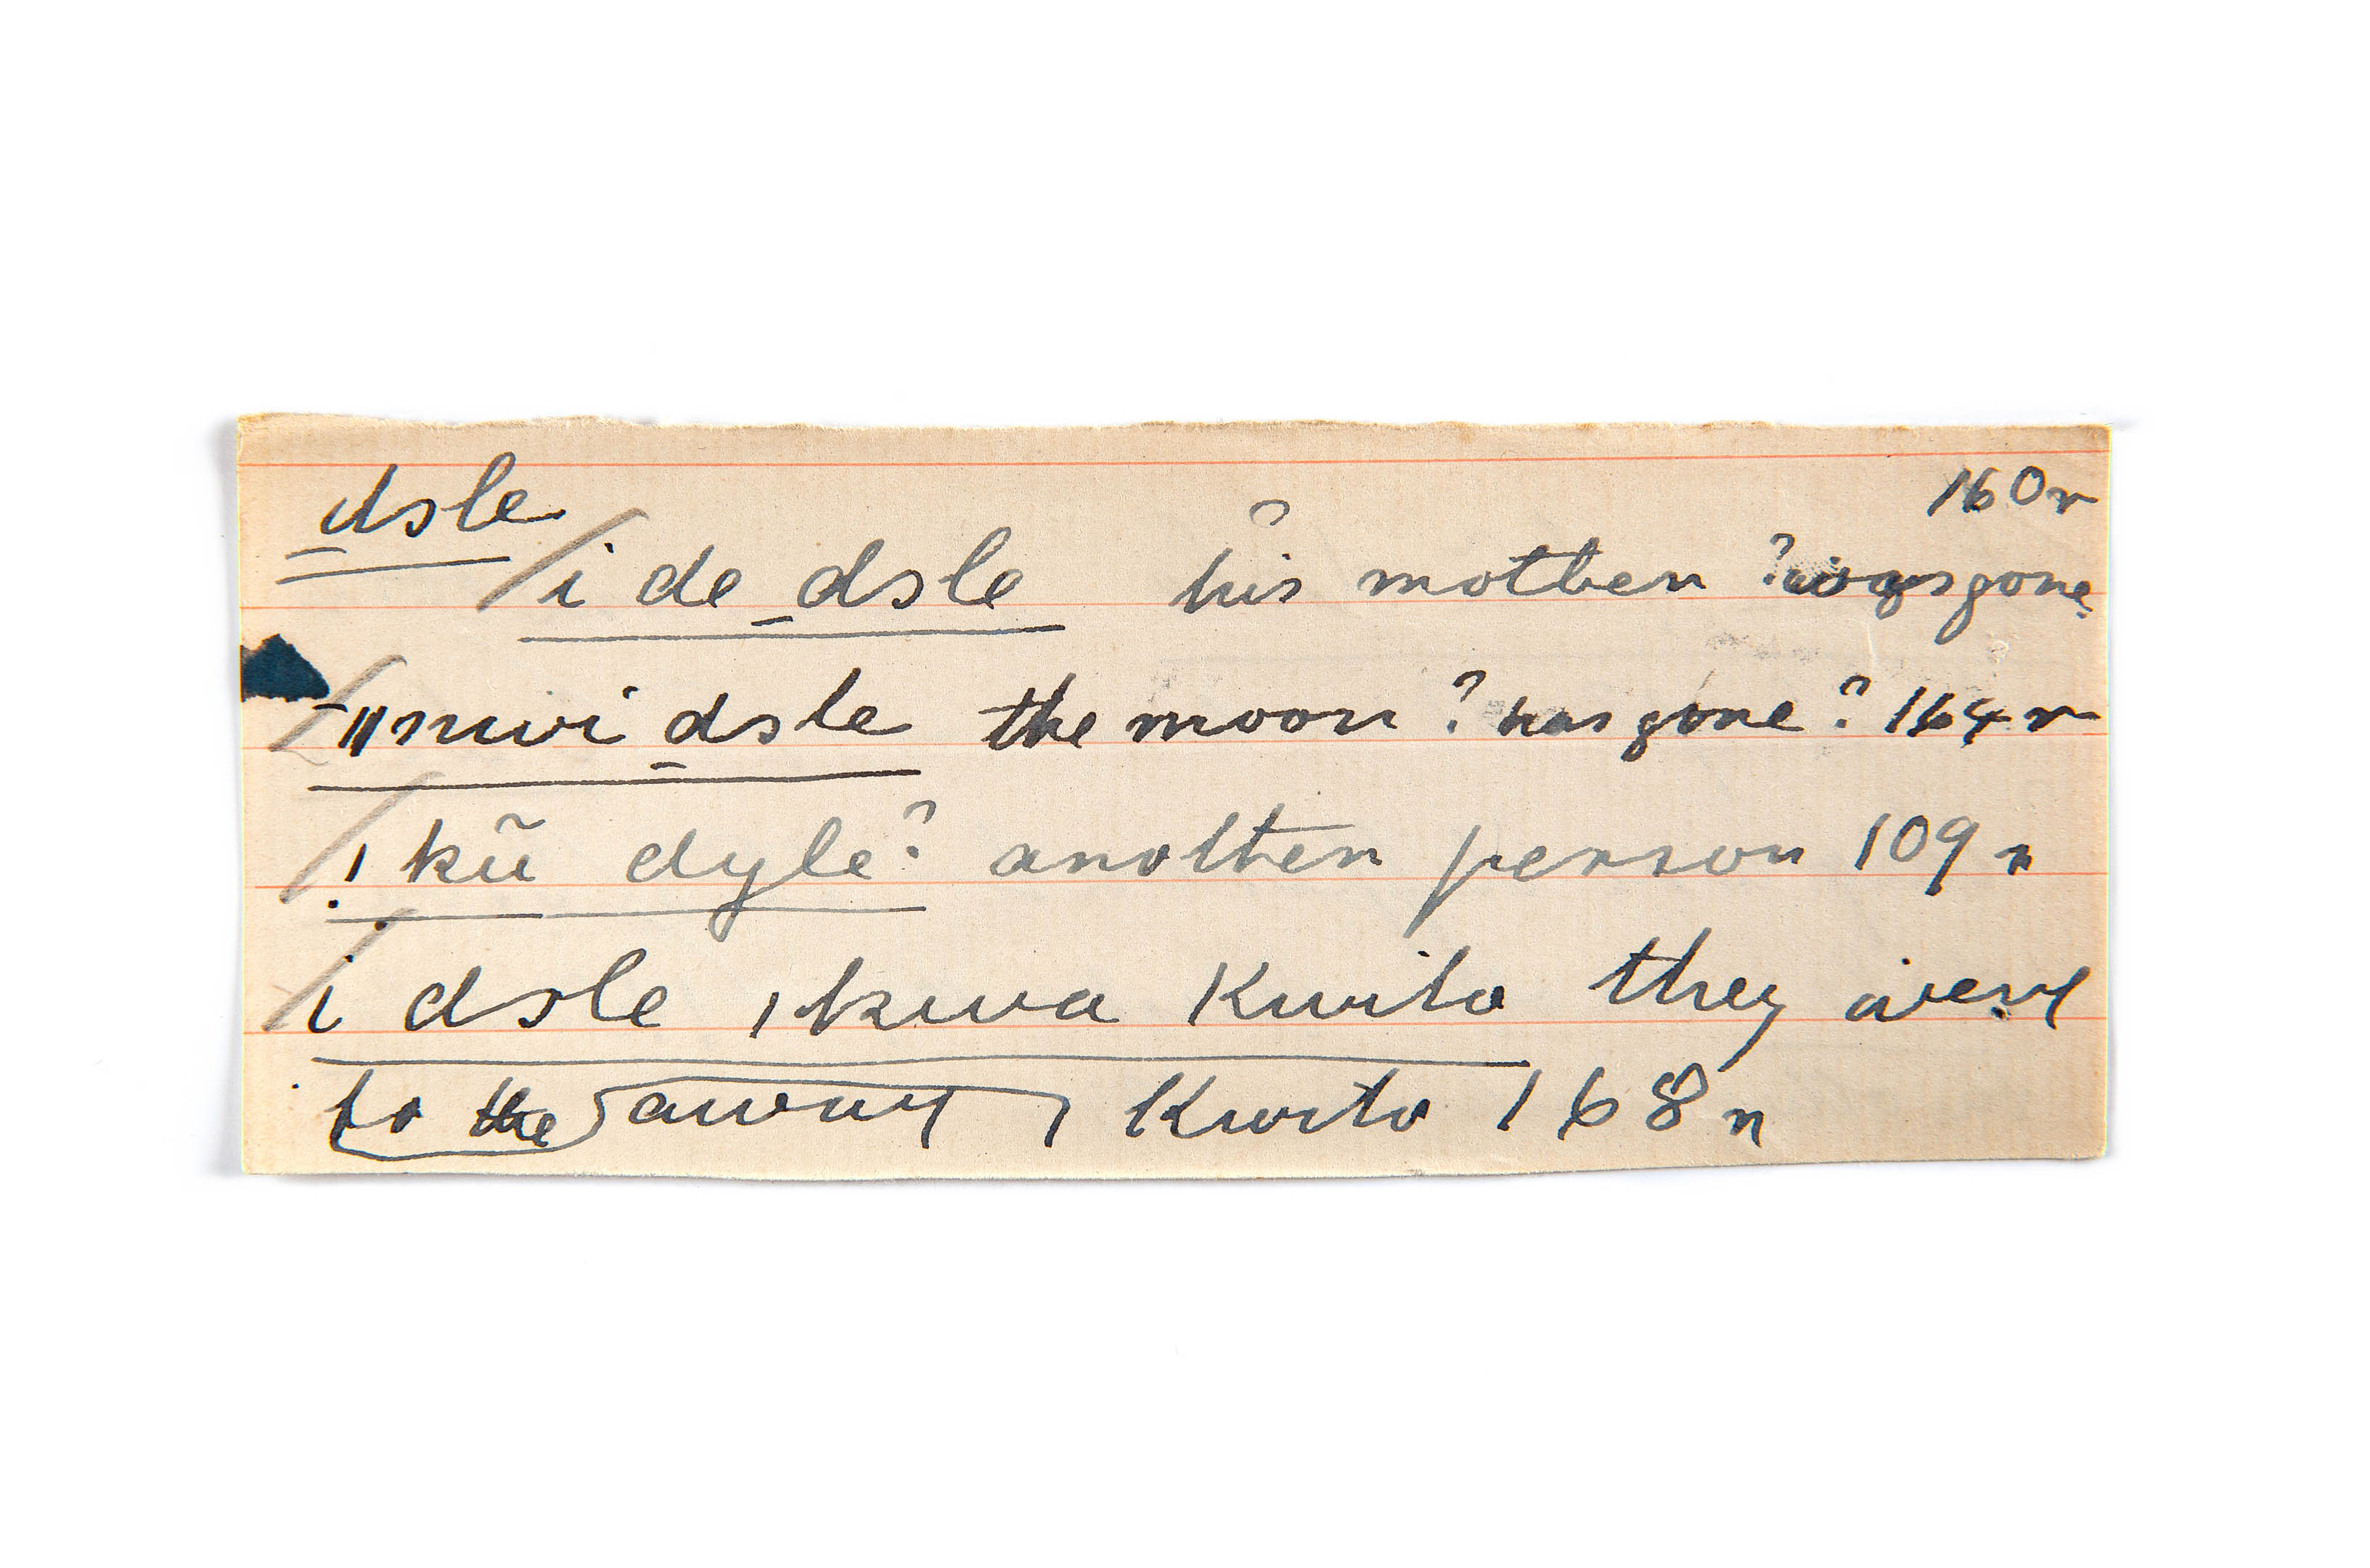 dsle 160r
i de dsle his mother ? was gone
ǁnwi dsle the moon ? has gone ? 164r
! kũ dyle ? another person 109r
i dsle ǀkwa Kwito they went
to the away, Kwito 168r